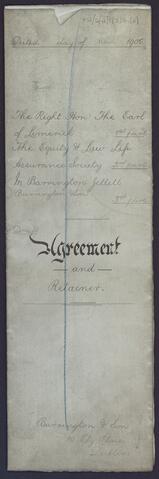 Dated day of 1906
The Right Hon: The Earl
of Limerick 1st part
The Equity & Law Life
Assurance Society 2nd part
Mr Barrington Jellett
Barrington & Son
3rd part
Agreement
and
Retainer.
Barrington & Son
Ely Place
Dublin